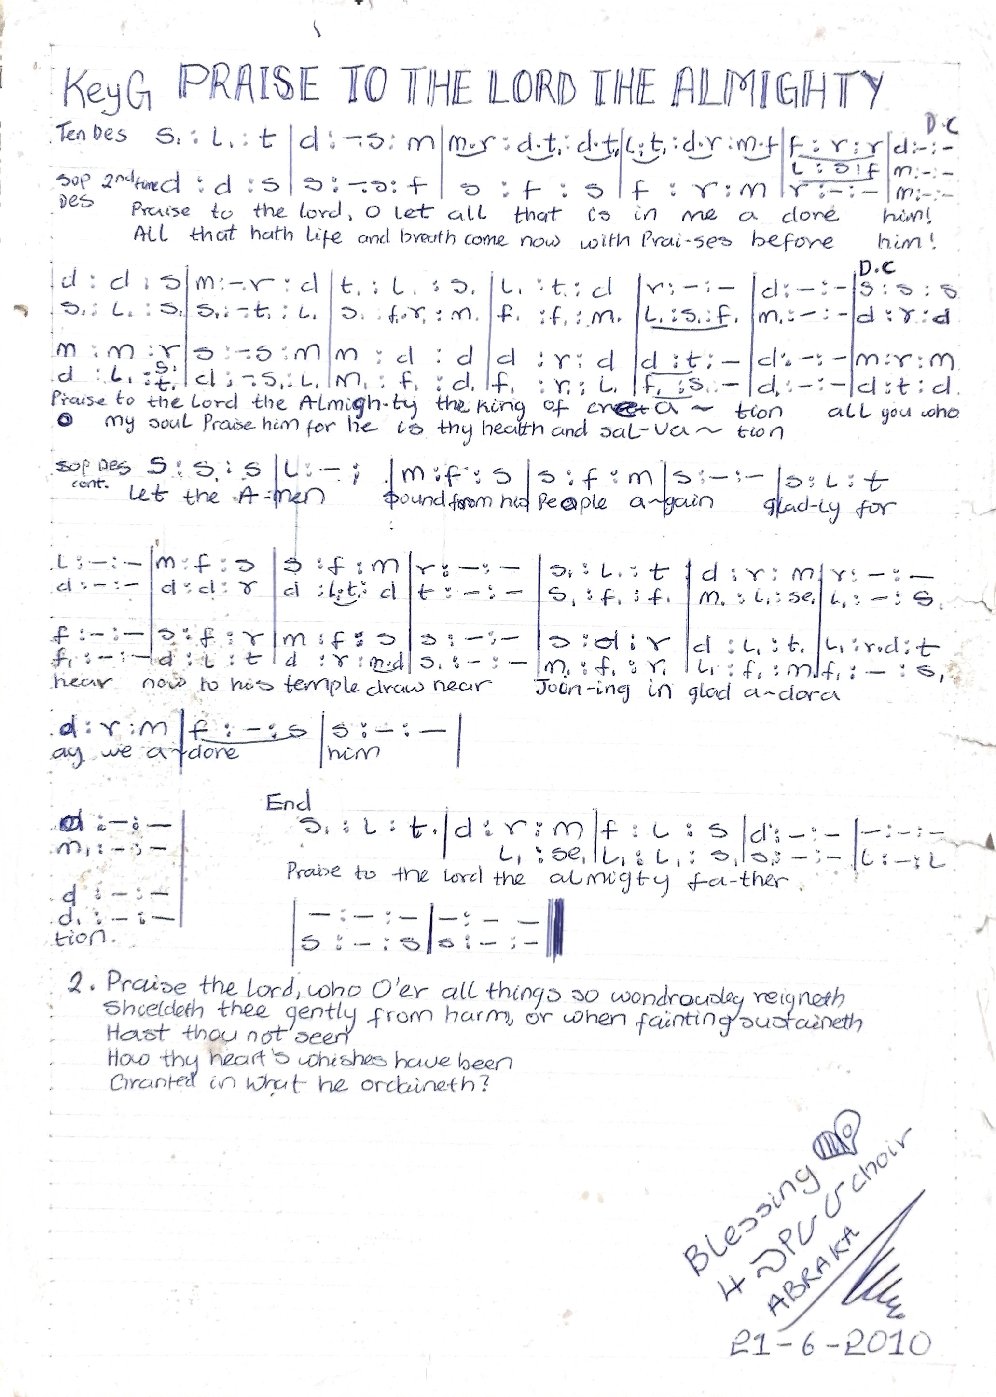 Key G PRAISE TO THE LORD THE ALMIGHTY
D.C
Ten Des s, : L, : t | d : - s : m | m.r : d.t, : d.t, | L,.t, : d.r : m.f | f : r : r | d : - : -
L : s : f | m : - : -
Sop Des 2nd tune d : d : s | s : - s : f | s : f : s | f : r : m | r : - : - | m : - : -
Praise to the lord, O let all that is in me a dore him!
All that hath life and breath come now with Prai-ses before him!
D.C
d : d : s | m : - r : d | t, : L, : s, | L, : t, : d | r : - : - | d : - : - | s : s : s
s, : L, : s, | s, : - t, : L, | s, : f,.r, : m, | f, : f, : m, | L, : s, : f, | m, : - : - | d : r : d
m : m : r | s : - s : m | m : d : d | d : r : d | d : t, : - | d : - : - | m : r : m
d : L, : s, t, | d : - s, : L, | m, : f, : d, | f, : r, : L, | f, : s, : - | d, : - : - | d : t : d
Praise to the Lord the Almigh-ty the King of crea ~ tion all you who
O my soul Praise him for he is thy health and sal-va ~ tion
Sop Des cont. s : s, : s | L : - : | m : f : s | s : f : m | s : - : - | s : L : t
Let the A-men sound from his People a-gain glad-ly for
L : - : - | m : f : s | s : f : m | r : - : - | s, : L, : t | d : r : m | r : - : -
d : - : - | d : d : r | d : L,.t, : d | t : - : - | s, : f, : f, | m, : L, : se, | L, : - : s,
f : - : - | s : f : r | m : f : s | s : - : - | s : d : r | d : L, : t, | L, : r.d : t
f, : - : - | d : L : t | d : r : m.d | s, : - : - | m, : f, : r, | L, : f, : m | f, : - : s,
hear now to his temple draw near Join-ing in glad a-dora
d : r : m | f : - : s | s : - : - |
ay we a-dore him
End
d : - : - | s, : L : t, | d : r : m | f : L : s | d' : - : - | - : - : -
m, : - : - | L, : se, | L, : L, : s, | s : - : - | L : - : L
Praise to the Lord the almigty fa-ther
d : - : -
d, : - : - | | - : - : - | - : - -
tion. | s : - : s | s : - : -
2. Praise the lord, who O'er all things so wondrousley reigneth
Shieldeth thee gently from harm, or when fainting sustaineth
Hast thou not seen
How thy heart's whishes have been
Granted in what he ordaineth?
Blessing
4 choir
ABRAKA
21-6-2010